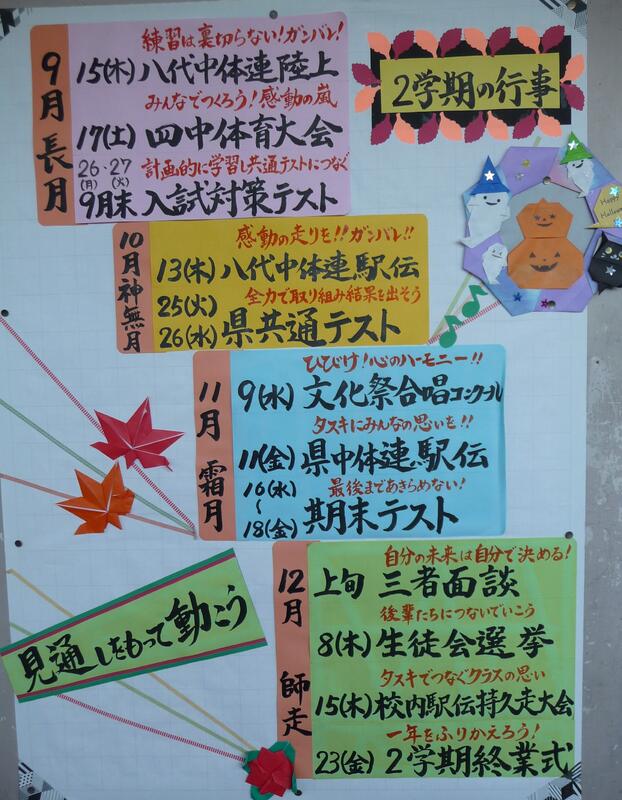 2学期の行事
9月 長月
練習は裏切らない！ガンバレ！
15(木) 八代中体連陸上
みんなでつくろう！感動の嵐
17(土) 四中体育大会
計画的に学習し共通テストにつなぐ
26・27
(月) (火)
9月末 入試対策テスト
10月 神無月
感動の走りを！！ガンバレ！！
13(木) 八代中体連駅伝
全力で取り組み結果を出そう
25(火)
26(水) 県共通テスト
11月 霜月
ひびけ！心のハーモニー！！
9(水) 文化祭合唱コンクール
タスキにみんなの思いを！！
11(金) 県中体連駅伝
最後まであきらめない！
16(水)
〜
18(金) 期末テスト
12月 師走
自分の未来は自分で決める！
上旬 三者面談
後輩たちにつないでいこう
8(木) 生徒会選挙
タスキでつなぐクラスの思い
15(木) 校内駅伝持久走大会
一年をふりかえろう！
23(金) 2学期終業式
見通しをもって動こう
Happy